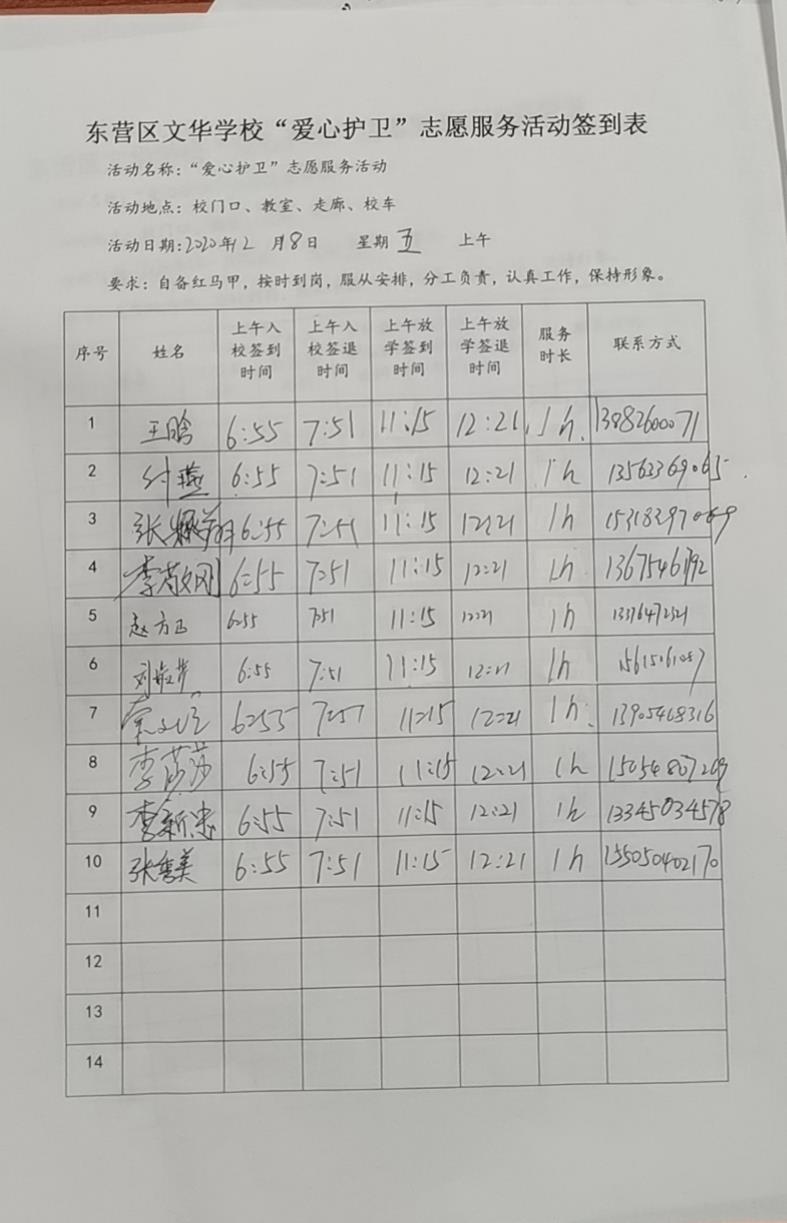 东营区文华学校“爱心护卫”志愿服务活动签到表
活动名称：“爱心护卫”志愿服务活动
活动地点：校门口、教室、走廊、校车
活动日期:2020年12月8日 星期五 上午
要求：自备红马甲，按时到岗，服从安排，分工负责，认真工作，保持形象。
序号 姓名 上午入校签到时间 上午入校签退时间 上午放学签到时间 上午放学签退时间 服务时长 联系方式
1 王晗 6:55 7:51 11:15 12:21 1h
2 付燕 6:55 7:51 11:15 12:21 1h 13562369065
3 张 翔 6:55 7:51 11:15 12:21 1h 15318397069
4 李敬刚 6:55 7:51 11:15 12:21 1h
5 赵方正 6:55 7:51 11:15 12:21 1h
6 刘 6:55 7:51 11:15 12:21 1h 15615061057
7 6:55 7:51 11:15 12:21 1h. 13905468316
8 李莎莎 6:55 7:51 11:15 12:21 1h 15054807209
9 李新忠 6:55 7:51 11:15 12:21 1h 13345034578
10 张秀美 6:55 7:51 11:15 12:21 1h 15505402170
11
12
13
14